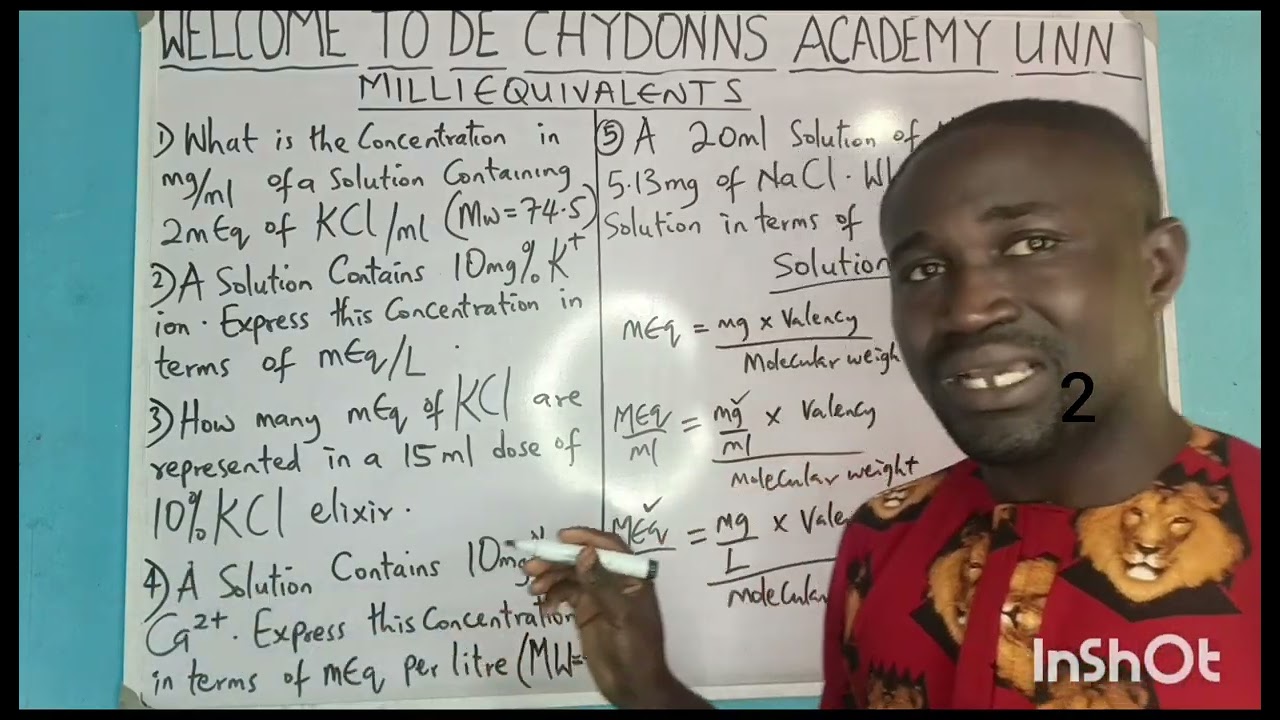 WELCOME TO DE CHYDONNS ACADEMY UNN
MILLIEQUIVALENTS
1) What is the Concentration in
mg/ml of a Solution Containing
2mEq of KCl/ml (Mw=74.5)
2) A Solution Contains 10mg% K+
ion. Express this Concentration in
terms of mEq/L.
3) How many mEq of KCl are
represented in a 15ml dose of
10% KCl elixir.
4) A Solution Contains 10mg%
Ca2+. Express this Concentration
in terms of mEq per litre (MW=
⑤ A 20ml Solution of
5.13mg of NaCl.
Solution in terms of
Solution
mEq = mg x Valency
Molecular weigh
MEq = mg x Valency
ml ml
Molecular weight
MEq = mg x Vale
L
Molecular
2
InShOt